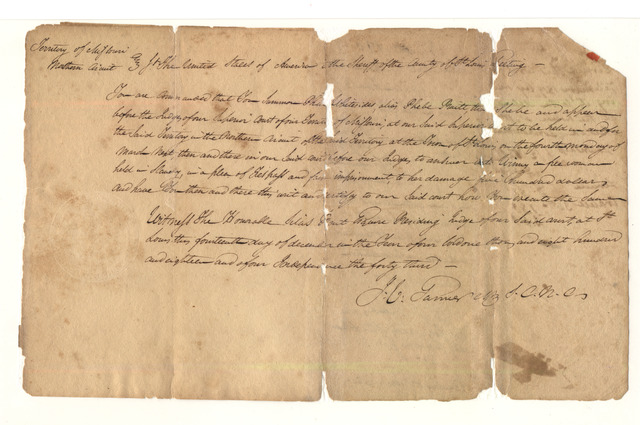 Territory of Missouri
Northern Circuit } The United States of America to the Sheriff of the County of St Louis Greeting —
You are Commanded that You Summon Whitesides alias Phebe Pruitt that She be and appear
before the Judge of our Superior Court of our Territory of Missouri, at our Said Superior Court to be held in and for
the Said Territory in the Northern Circuit of the said Territory at the Town of St Louis, on the fourth monday of
March Next then and there in our Said Court before our Judge to answer Winny a free woman
held in Slavery, in a plea of Trespass and false imprisonment, to her damage five hundred dollars
and have You then and there this writ and certify to our Said court how You execute the Same
Witness The Honorable Silas Bent Esquire Presiding Judge of our Said court, at St
Louis this fourteenth day of december in the Year of our Lord one thousand eight hundred
and eighteen and of our Independence the forty third —